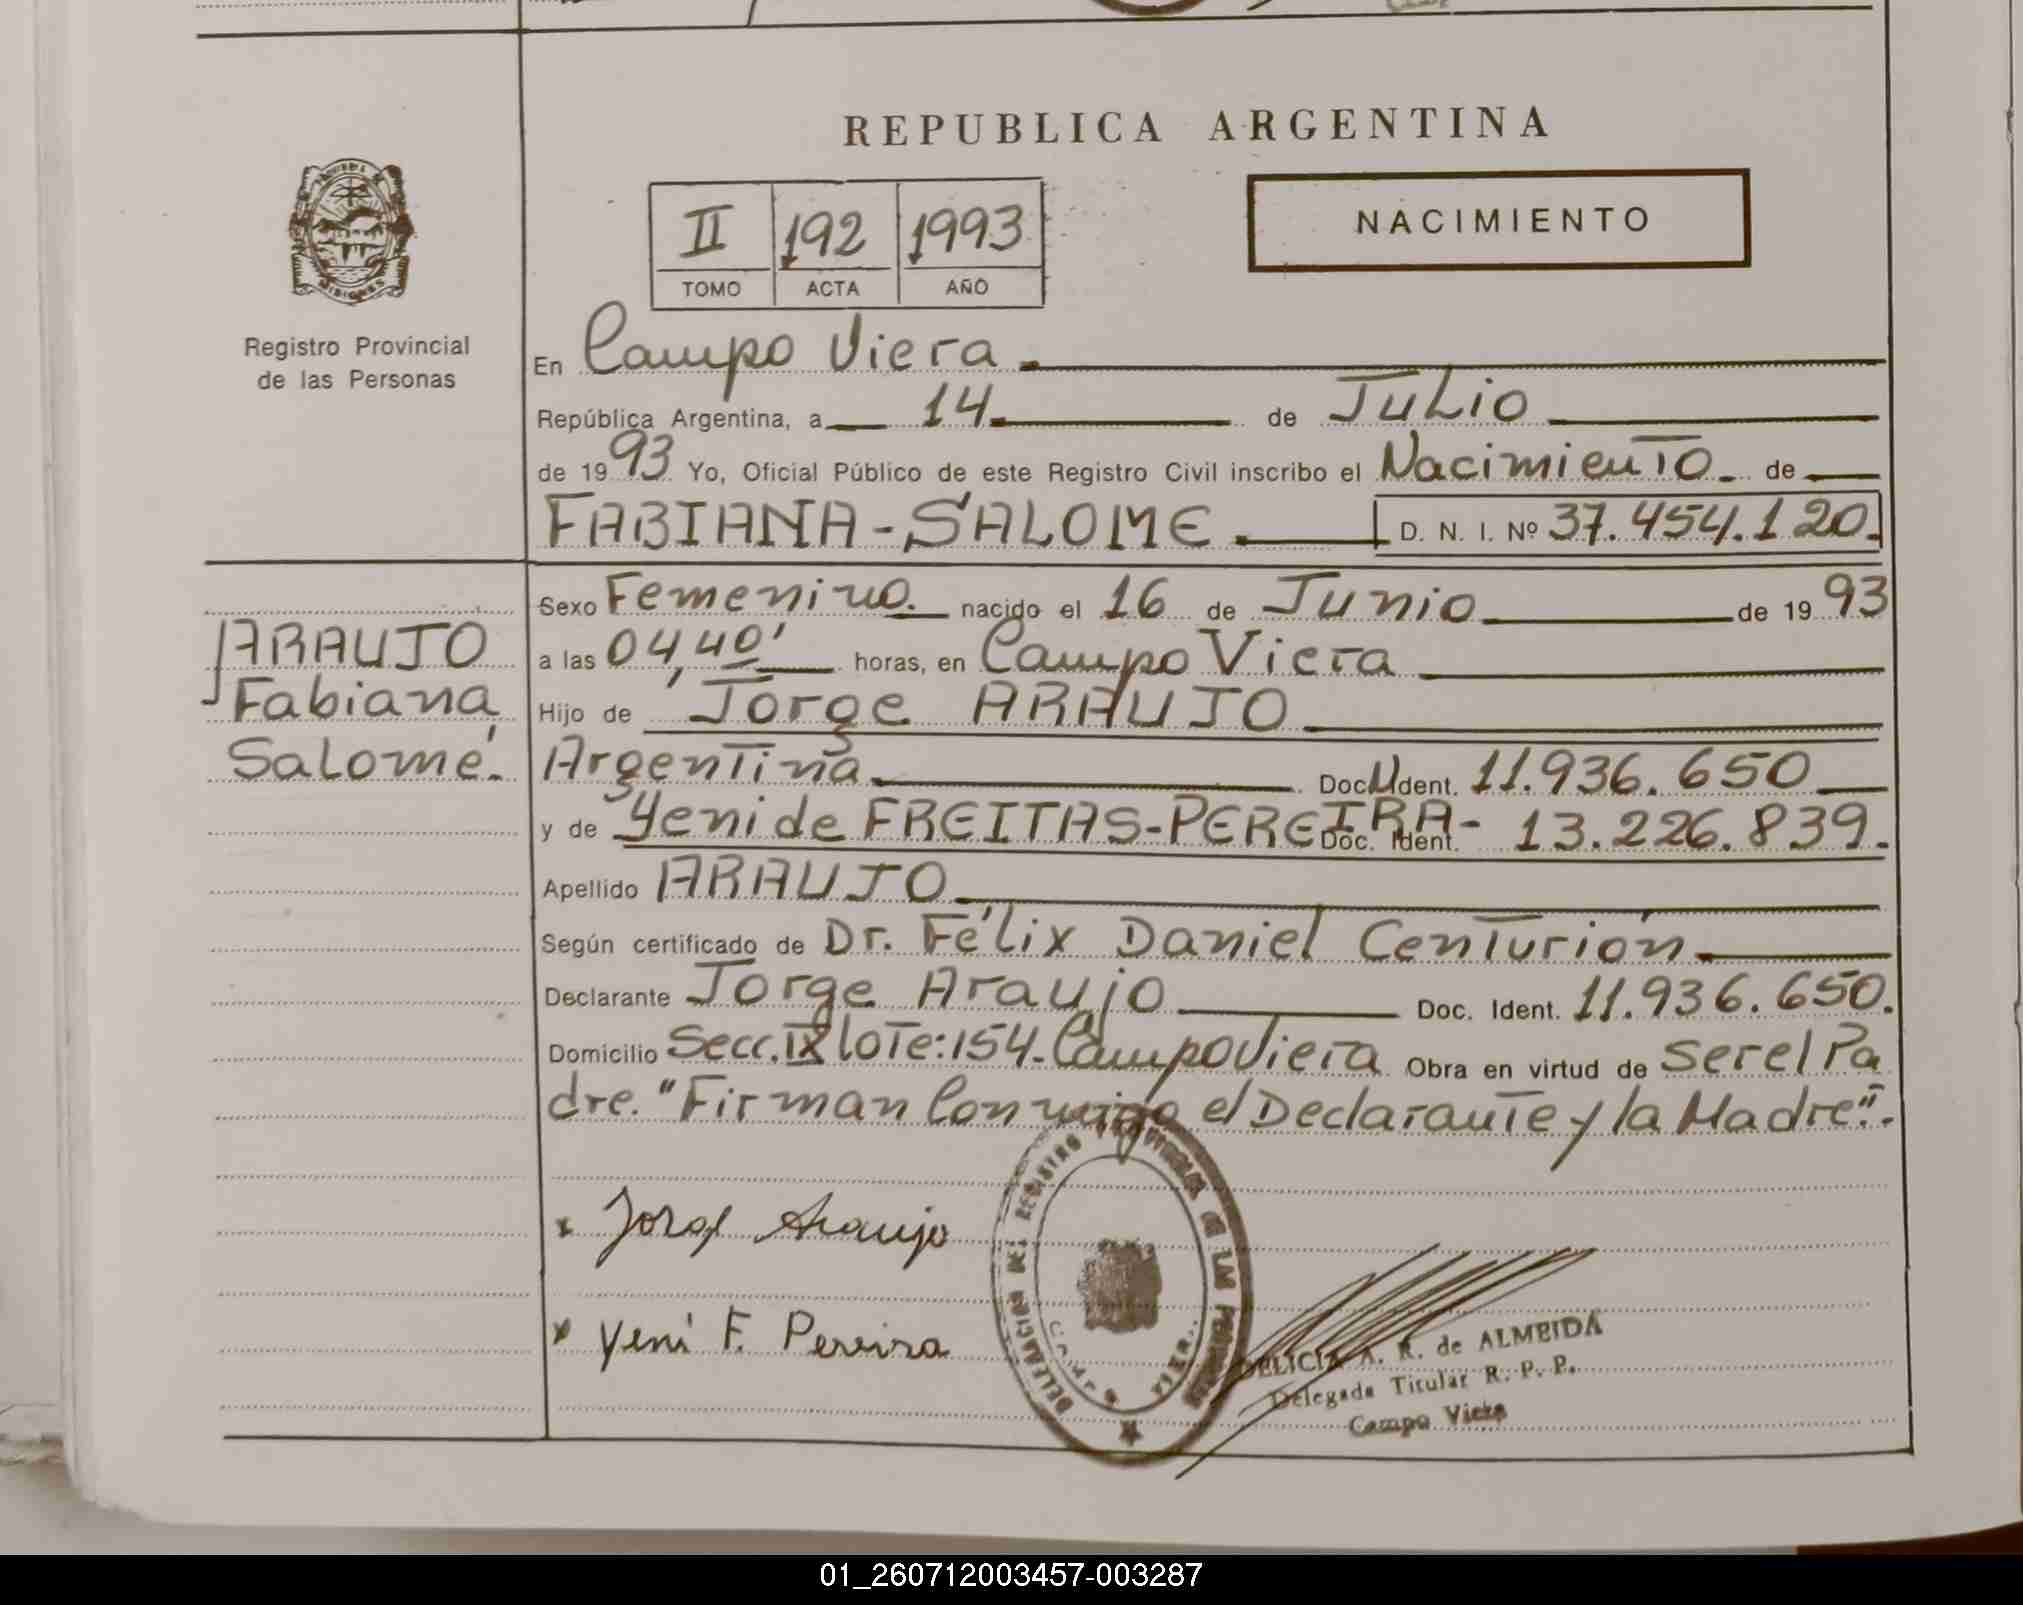 REPUBLICA ARGENTINA
MISIONES
II 192 1993
TOMO ACTA AÑO
NACIMIENTO
Registro Provincial
de las Personas
En Campo Viera
República Argentina, a 14 de Julio
de 1993 Yo, Oficial Público de este Registro Civil inscribo el Nacimiento de
FABIANA-SALOME D. N. I. Nº 37.454.120.
ARAUJO
Fabiana
Salomé.
Sexo Femenino. nacido el 16 de Junio de 1993
a las 04,40' horas, en Campo Viera
Hijo de Jorge ARAUJO
Argentina Doc. Ident. 11.936.650
y de Yeni de FREITAS-PEREIRA- Doc. Ident. 13.226.839.
Apellido ARAUJO
Según certificado de Dr. Félix Daniel Centurión
Declarante Jorge Araujo Doc. Ident. 11.936.650.
Domicilio Secc. IX lote:154-Campo Viera Obra en virtud de ser el Pa
dre. "Firman Conmigo el Declarante y la Madre".-
x Jorge Araujo
x Yeni F. Pereira
DELEGACION DEL REGISTRO PROVINCIAL DE LAS PERSONAS
DELICIA A. R. de ALMEIDA
Delegada Titular R. P. P.
Campo Viera
01_260712003457-003287